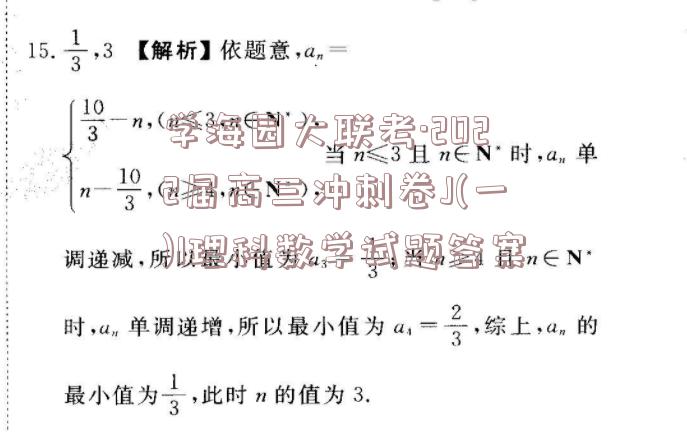 15. 1/3, 3 【解析】依题意, aₙ =
{ 10/3 − n, (n ≤ 3, n ∈ N*),
当 n ≤ 3 且 n ∈ N* 时, aₙ 单
n − 10/3, (n ≥ 4, n ∈ N*),
调递减, 所以最小值为 a₃ = 1/3, 当 n ≥ 4 且 n ∈ N*
时, aₙ 单调递增, 所以最小值为 a₄ = 2/3, 综上, aₙ 的
最小值为 1/3, 此时 n 的值为 3.
学海园大联考·202
2届高三冲刺卷J(一
)1理科数学试题答案